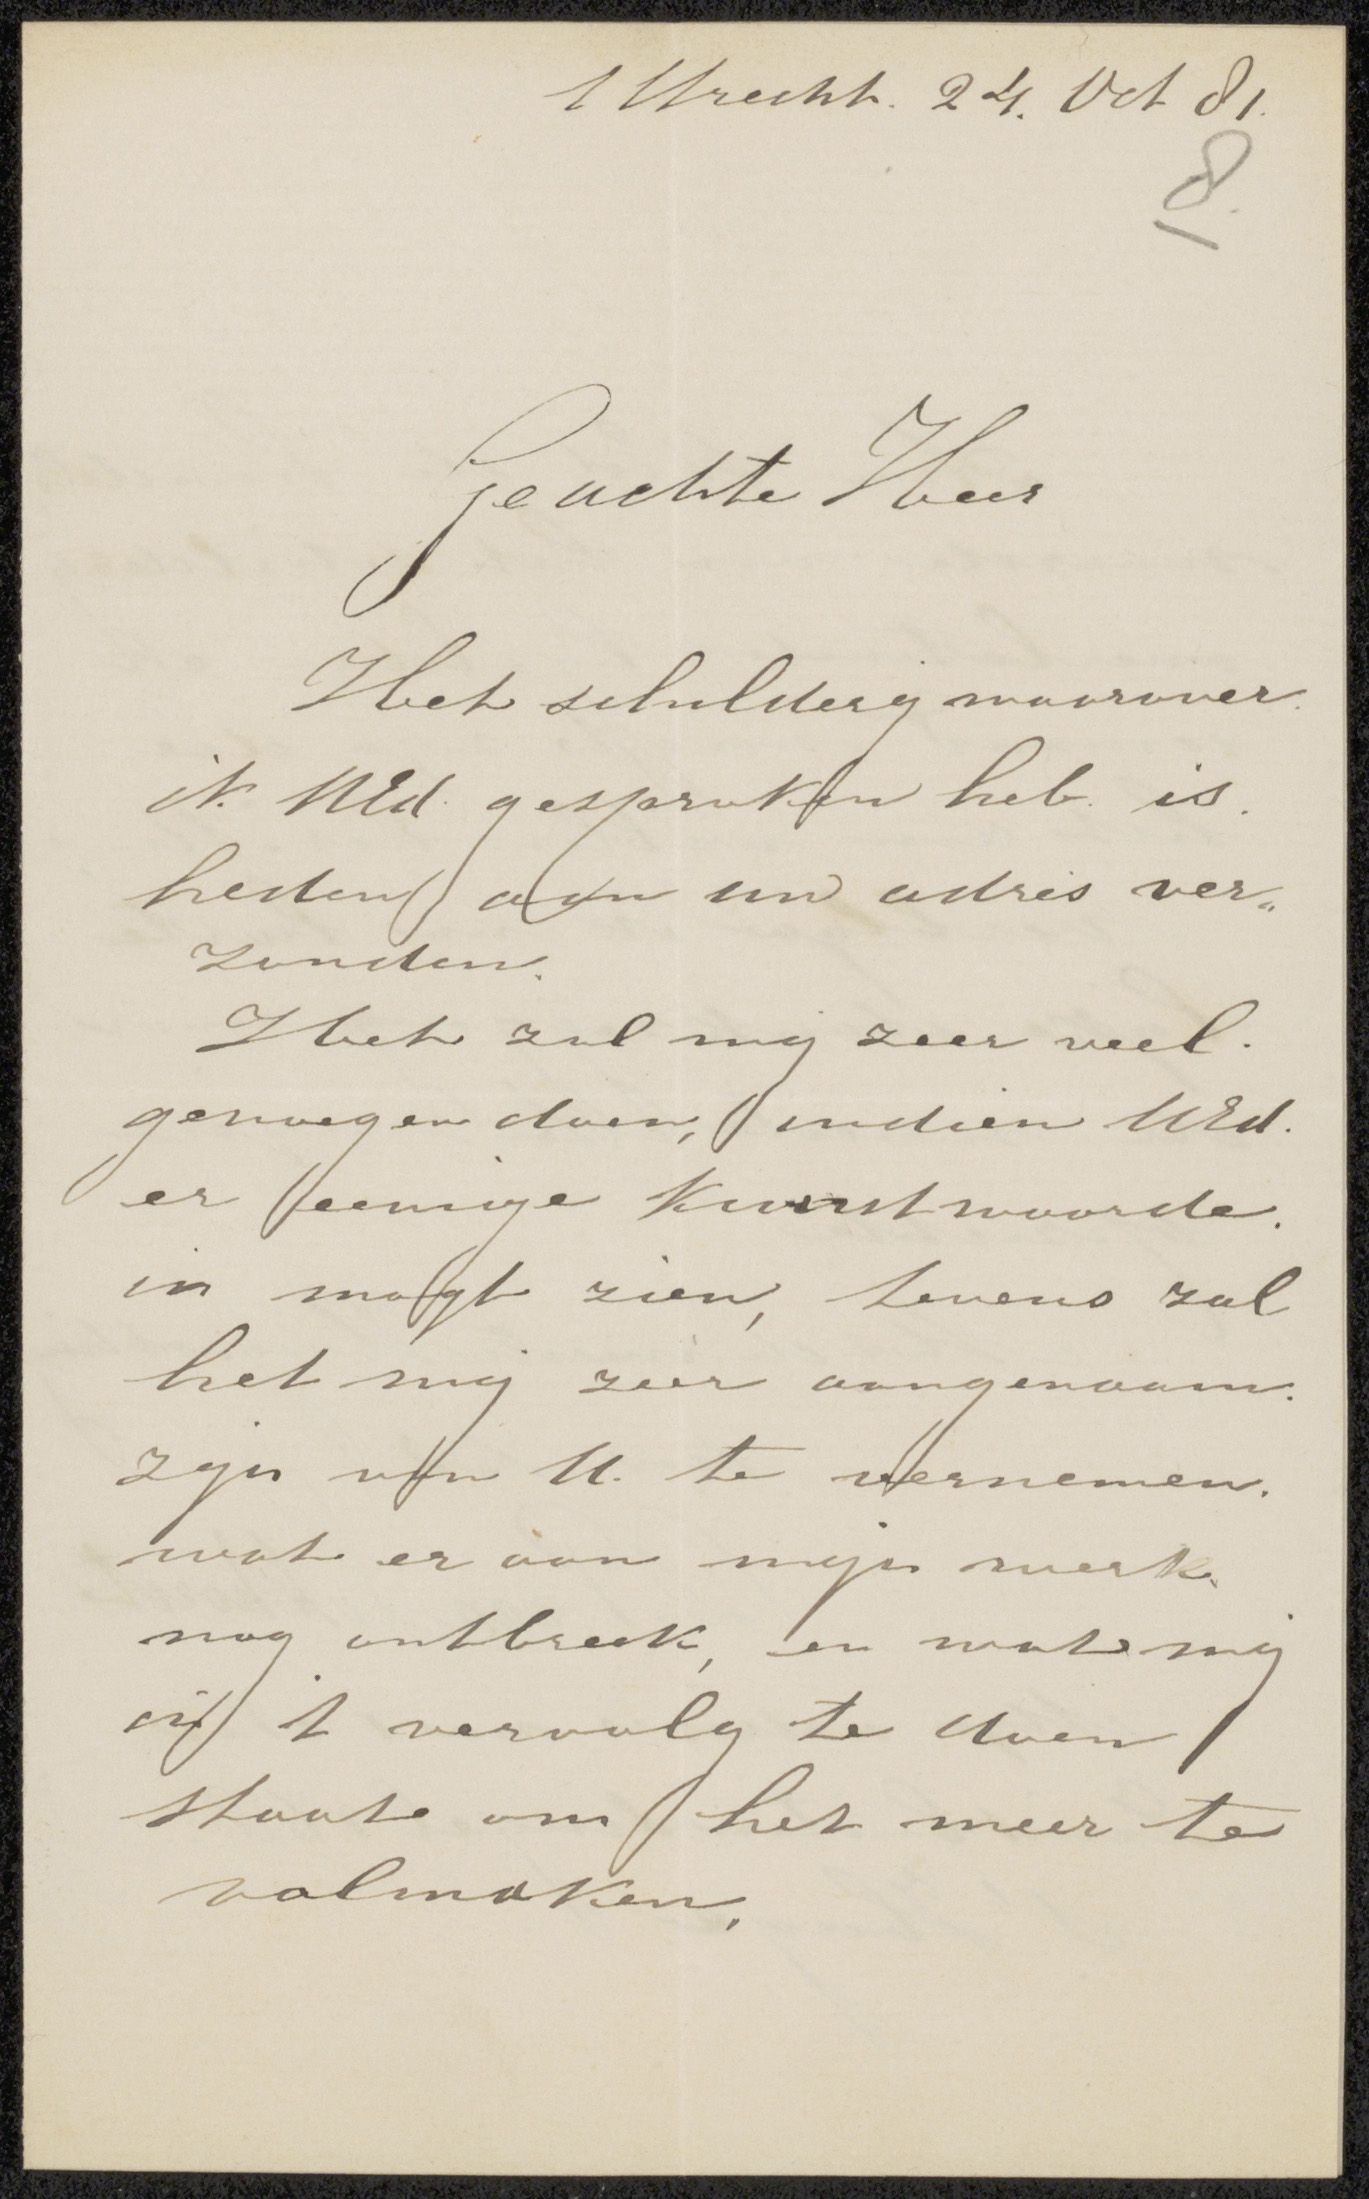 Utrecht. 24. Oct 81.
8.
Geachte Heer
Het schilderij waarover.
ik UEd. gesproken heb. is.
heden aan uw adres ver„
zonden.
Het zal mij zeer veel.
genoegen doen, indien UEd.
er eenige kunstwaarde.
in mogt zien, tevens zal
het mij zeer aangenaam.
zijn van U. te vernemen.
wat er aan mijn werk.
nog ontbreek, en wat mij
in 't vervolg te doen
staat om het meer te
volmaken.